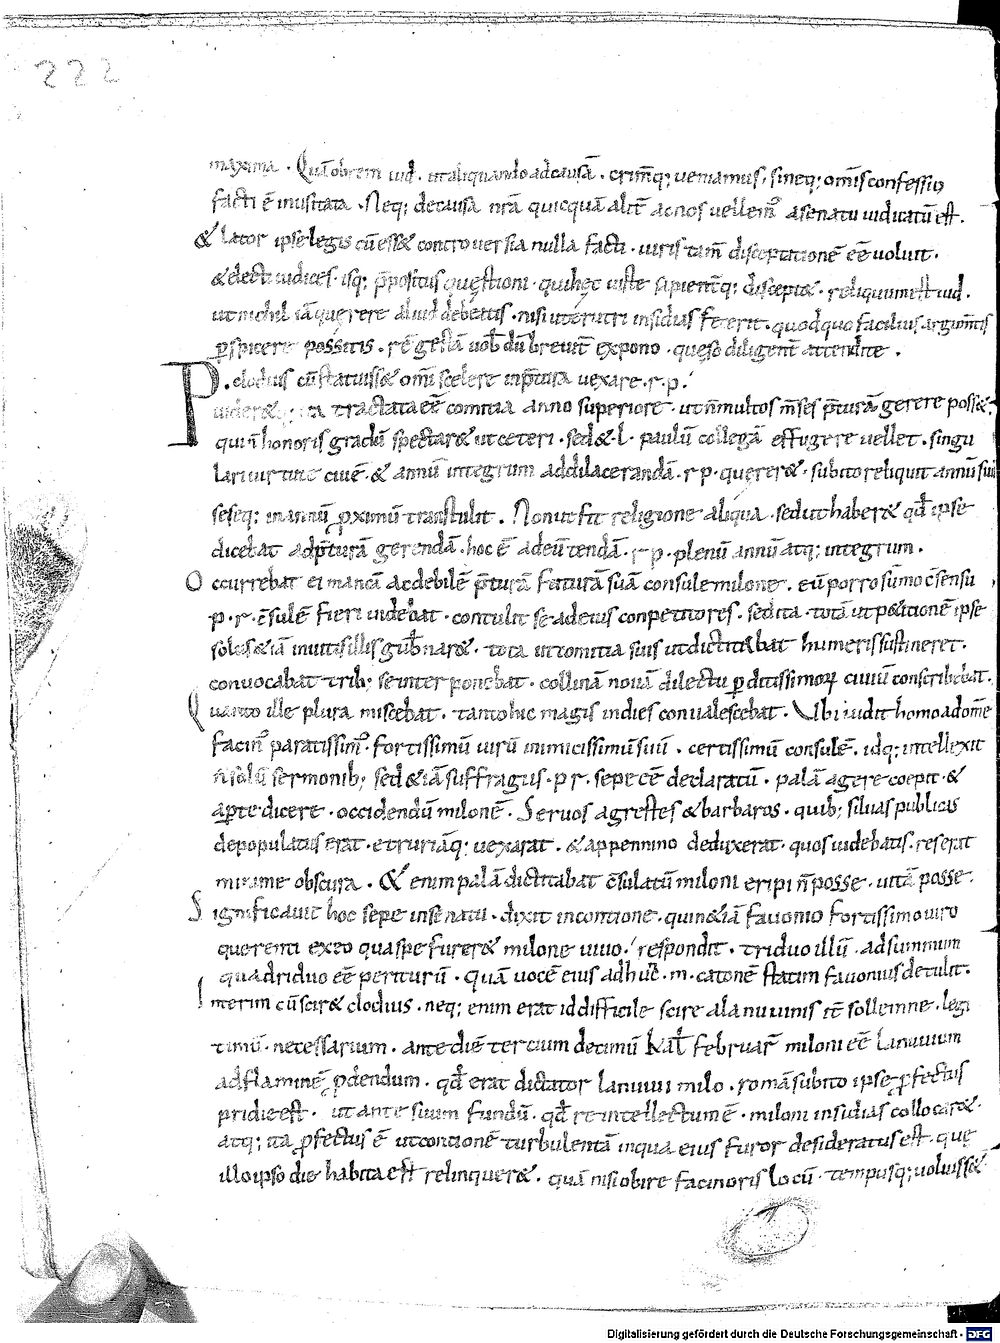 222
maxima . Quāobrem iud . utaliquando adcausā . crim̄q; ueniamus . sineq; om̄is confessio
facti ē inusitata . Neq; decausa nr̄a quicquā alit̄ ac nos uellemꝰ asenatu iudicatū est .
& lator ipse legis cū ess& controuersia nulla facti . iuris tam̄ disceptationē eē uoluit .
& electi iudices . isq; p̄positus quęstioni . qui hęc iuste sapient̄q; discept& . reliquum est iud .
ut nichil iā quęrere aliud debeatis . nisi uter utri insidias fecerit . quod quo facilius argumtis
ꝑspicere possitis . rē gestā uob̄ dū breuit̄ expono . quęso diligent̄ attendite .
P . clodius cū statuiss& om̄i scelere inp̄tura uexare . r . p .
uider& ita tractata eē comitia anno superiore . ut n̄ multos m̄ses p̄turā gerere poss& .
qui n̄ honoris gradū spectar& ut ceteri . sed & . l . paulū collegā effugere uellet . singu
lari uirtute ciuē . & annū integrum ad dilacerandā . r p . quęrer& . subito reliquit annū suū
seseq; in annū ꝓximū transtulit . Non ut fit religione aliqua . sed ut haber& qd̄ ipse
dicebat adp̄turā gerendā . hoc ē ad euertendā . r p . plenū annū atq; integrum .
Occurrebat ei mancā ac debilē p̄turā futurā suā consule milone . eū porro sūmo c̄sensu
p . r . c̄sulē fieri uidebat . contulit se ad eius conpetitores . sed ita . totā ut p&itionē ipse
solus &iā inuitis illis gub̄nar& . tota ut comitia suis ut dictitabat humeris sustineret .
conuocabat trib; se interponebat . collinā nouā dilectu ꝑditissimoꝝ ciuiū conscribebat .
Quanto ille plura miscebat . tanto hic magis indies conualescebat . Ubi uidit homo ad om̄e
facinꝰ paratissimꝰ . fortissimū uirū inimicissimū suū . certissimū consulē . idq; intellexit
n̄ solū sermonib; sed &iā suffragiis . p r . sepe eē declaratū . palā agere coepit . &
aꝑte dicere . occidendū milonē . Seruos agrestes & barbaros . quib; siluas publicas
depopulatus erat . etruriāq; uexarat . & appennino deduxerat . quos uidebatis . res erat
minime obscura . & enim palā dictitabat c̄sulatū miloni eripi n̄ posse . uitā posse .
Significauit hoc sepe in senatu . dixit incontione . quin &iā fauonio fortissimo uiro
querenti ex eo qua spe furer& milone uiuo . respondit . triduo illū . ad summum
quadriduo eē periturū . quā uocē eius ad hūc . m . catonē statim fauonius detulit .
Interim cū scir& clodius . neq; enim erat id difficile scire a lanuuinis it̄ sollemne . legi
timū . necessarium . ante diē tercium decimū kal̄ februar̄ miloni eē lanuuium
ad flaminē ꝓdendum . qd̄ erat dictator lanuuii milo . romā subito ipse ꝓfectus
pridie est . ut ante suum fundū . qd̄ re intellectum ē . miloni insidias collocar& .
atq; ita ꝓfectus ē ut contionē turbulentā inqua eius furor desideratus est . quę
illo ipso die habita est relinquer& . quā nisi obire facinoris locū . tempusq; uoluiss&
Digitalisierung gefördert durch die Deutsche Forschungsgemeinschaft - DFG